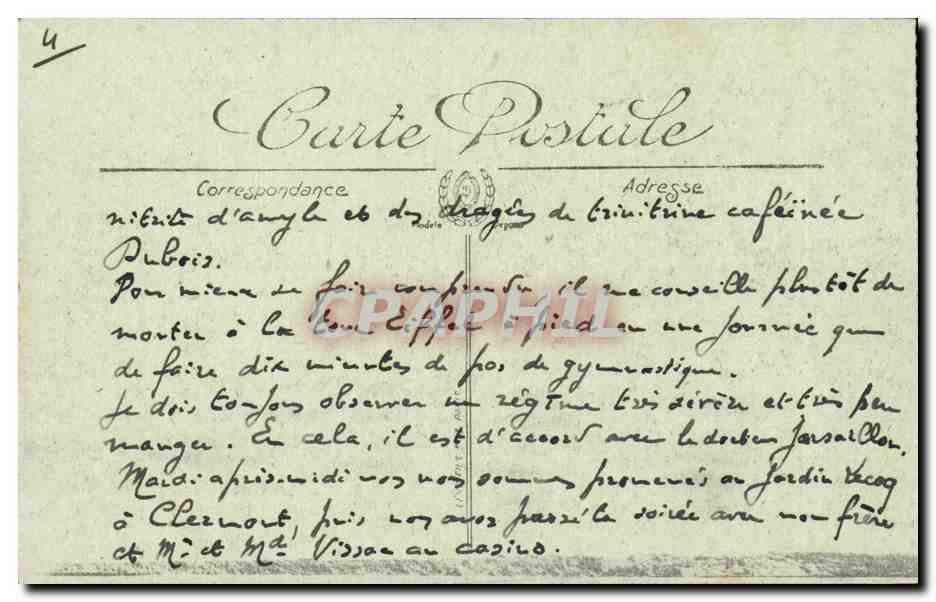 4
Carte Postale
Correspondance Adresse
nitrite d'amyle et des dragées de trinitrine caféïnée
Dubois.
Pour mieux se faire comprendre, il me conseille plutôt de
monter à la tour Eiffel à pied en une journée que
de faire dix minutes de pas de gymnastique.
Je dois toujours observer un régime très sévère et très peu
manger. En cela, il est d'accord avec le docteur
Mardi après-midi nous nous sommes promenés au Jardin Lecoq
à Clermont, puis nous avons passé la soirée avec mon frère
et Mr et Md Vissac au casino.
CPAPHIL